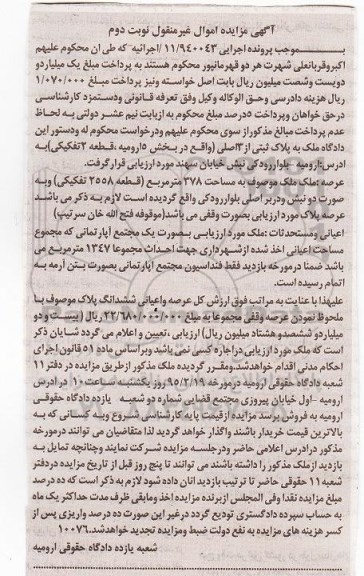 آگهی مزایده اموال غیرمنقول نوبت دوم
بموجب پرونده اجرایی ۱۱/۹۴۰۰۴۳ اجرائیه که طی ان محکوم علیهم
اکبر وقربانعلی شهرت هر دو قهرمانپور محکوم هستند به پرداخت مبلغ یک میلیاردو
دویست وشصت میلیون ریال بابت اصل خواسته ونیز پرداخت مبلغ ۱/۰۷۰/۰۰۰
ریال هزینه دادرسی وحق الوکاله وکیل وفق تعرفه قانونی ودستمزد کارشناسی
درحق خواهان وپرداخت ۵درصد مبلغ محکوم به ازبابت نیم عشر دولتی به لحاظ
عدم پرداخت مبالغ مذکوراز سوی محکوم علیهم ودرخواست محکوم له ودستور این
دادگاه ملک به پلاک ثبتی از ۳اصلی (واقع در بخش ۵ارومیه ،قطعه ۲تفکیکی)به
ادرس:ارومیه -بلواررودکی نبش خیابان سهند مورد ارزیابی قرار گرفت.
عرصه :ملک ملک موصوف به مساحت ۳۷۸ مترمربع (قطعه ۲۵۵۸ تفکیکی) وبه
صورت دو نبش ودربر اصلی بلواررودکی واقع گردیده است لازم به ذکر می باشد
عرصه پلاک مورد ارزیابی بصورت وقفی می باشد(موقوفه فتح اله خان سرتیپ)
اعیانی ومستحدثات :ملک مورد ارزیابی بصورت یک مجتمع آپارتمانی که مجموع
مساحت اعیانی اخذ شده ازشهرداری جهت احداث مجموعا ۱۳۴۷ مترمربع می
باشد ضمنا درمورخه بازدید فقط فنداسیون مجتمع آپارتمانی بصورت بتن آرمه به
اتمام رسیده است.
علیهذا با عنایت به مراتب فوق ارزش کل عرصه واعیانی ششدانگ پلاک موصوف با
ملحوظ نمودن عرصه وقفی مجموعا به مبلغ ۲۲/۶۸۰/۰۰۰/۰۰۰ ریال (بیست و دو
میلیاردو ششصدو هشتاد میلیون ریال) ارزیابی ،تعیین و اعلام می گردد شایان ذکر
است که ملک مورد ارزیابی دراجاره کسی نمی باشد وبراساس ماده ۵۱ قانون اجرای
احکام مدنی اقدام خواهدشد.ومقرر گردیده ملک مذکور ازطریق مزایده در دفتر ۱۱
شعبه دادگاه حقوقی ارومیه درمورخه ۹۵/۲/۱۹ روز یکشنبه ساعت۱۰ در ادرس
ارومیه -اول خیابان پیروزی مجتمع قضایی شماره دو شعبه یازده دادگاه حقوقی
ارومیه به فروش برسد مزایده ازقیمت پایه کارشناسی شروع وبه کسانی که به
بالاترین قیمت خریدار باشند واگذار خواهد گردید لذا متقاضیان می توانند درمورخه
مذکور درادرس اعلامی حاضر ودرجلسه مزایده شرکت نمایند وچنانچه تمایل به
بازدید ازملک مذکور را داشته باشند می توانند تا پنج روز قبل از تاریخ مزایده دردفتر
شعبه ۱۱ حقوقی حاضر تا ترتیب بازدید انان داده شود لازم به ذکر است که ده درصد
مبلغ مزایده نقدا وفی المجلس ازبرنده مزایده اخذ ومابقی ظرف مدت حداکثر یک ماه
به حساب سپرده دادگستری تودیع گردد درغیر این صورت ده درصد واریزی پس از
کسر هزینه های مزایده به نفع دولت ضبط ومزایده تجدید خواهدشد. ۱۰۰۷۶
شعبه یازده دادگاه حقوقی ارومیه